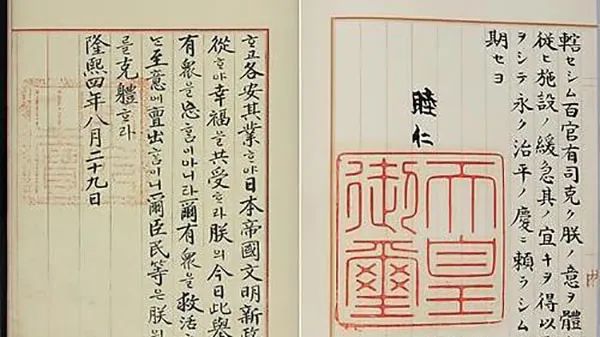 ᄒᆞ고各安其業ᄒᆞ야日本帝國文明新政
從ᄒᆞ야幸福을共受ᄒᆞ라朕의今日此擧
有衆을忘ᄒᆞᆷ이아니라爾有衆을救活
ᄂᆞᆫ至意에亶出ᄒᆞᆷ이니爾臣民等은朕의
를克體ᄒᆞ라
隆熙四年八月二十九日
轄セシム百官有司克ク朕ノ意ヲ體
從ヒ施設ノ緩急其ノ宜キヲ得以
ヲシテ永ク治平ノ慶ニ賴ラシム
期セヨ
睦仁
天皇
御璽